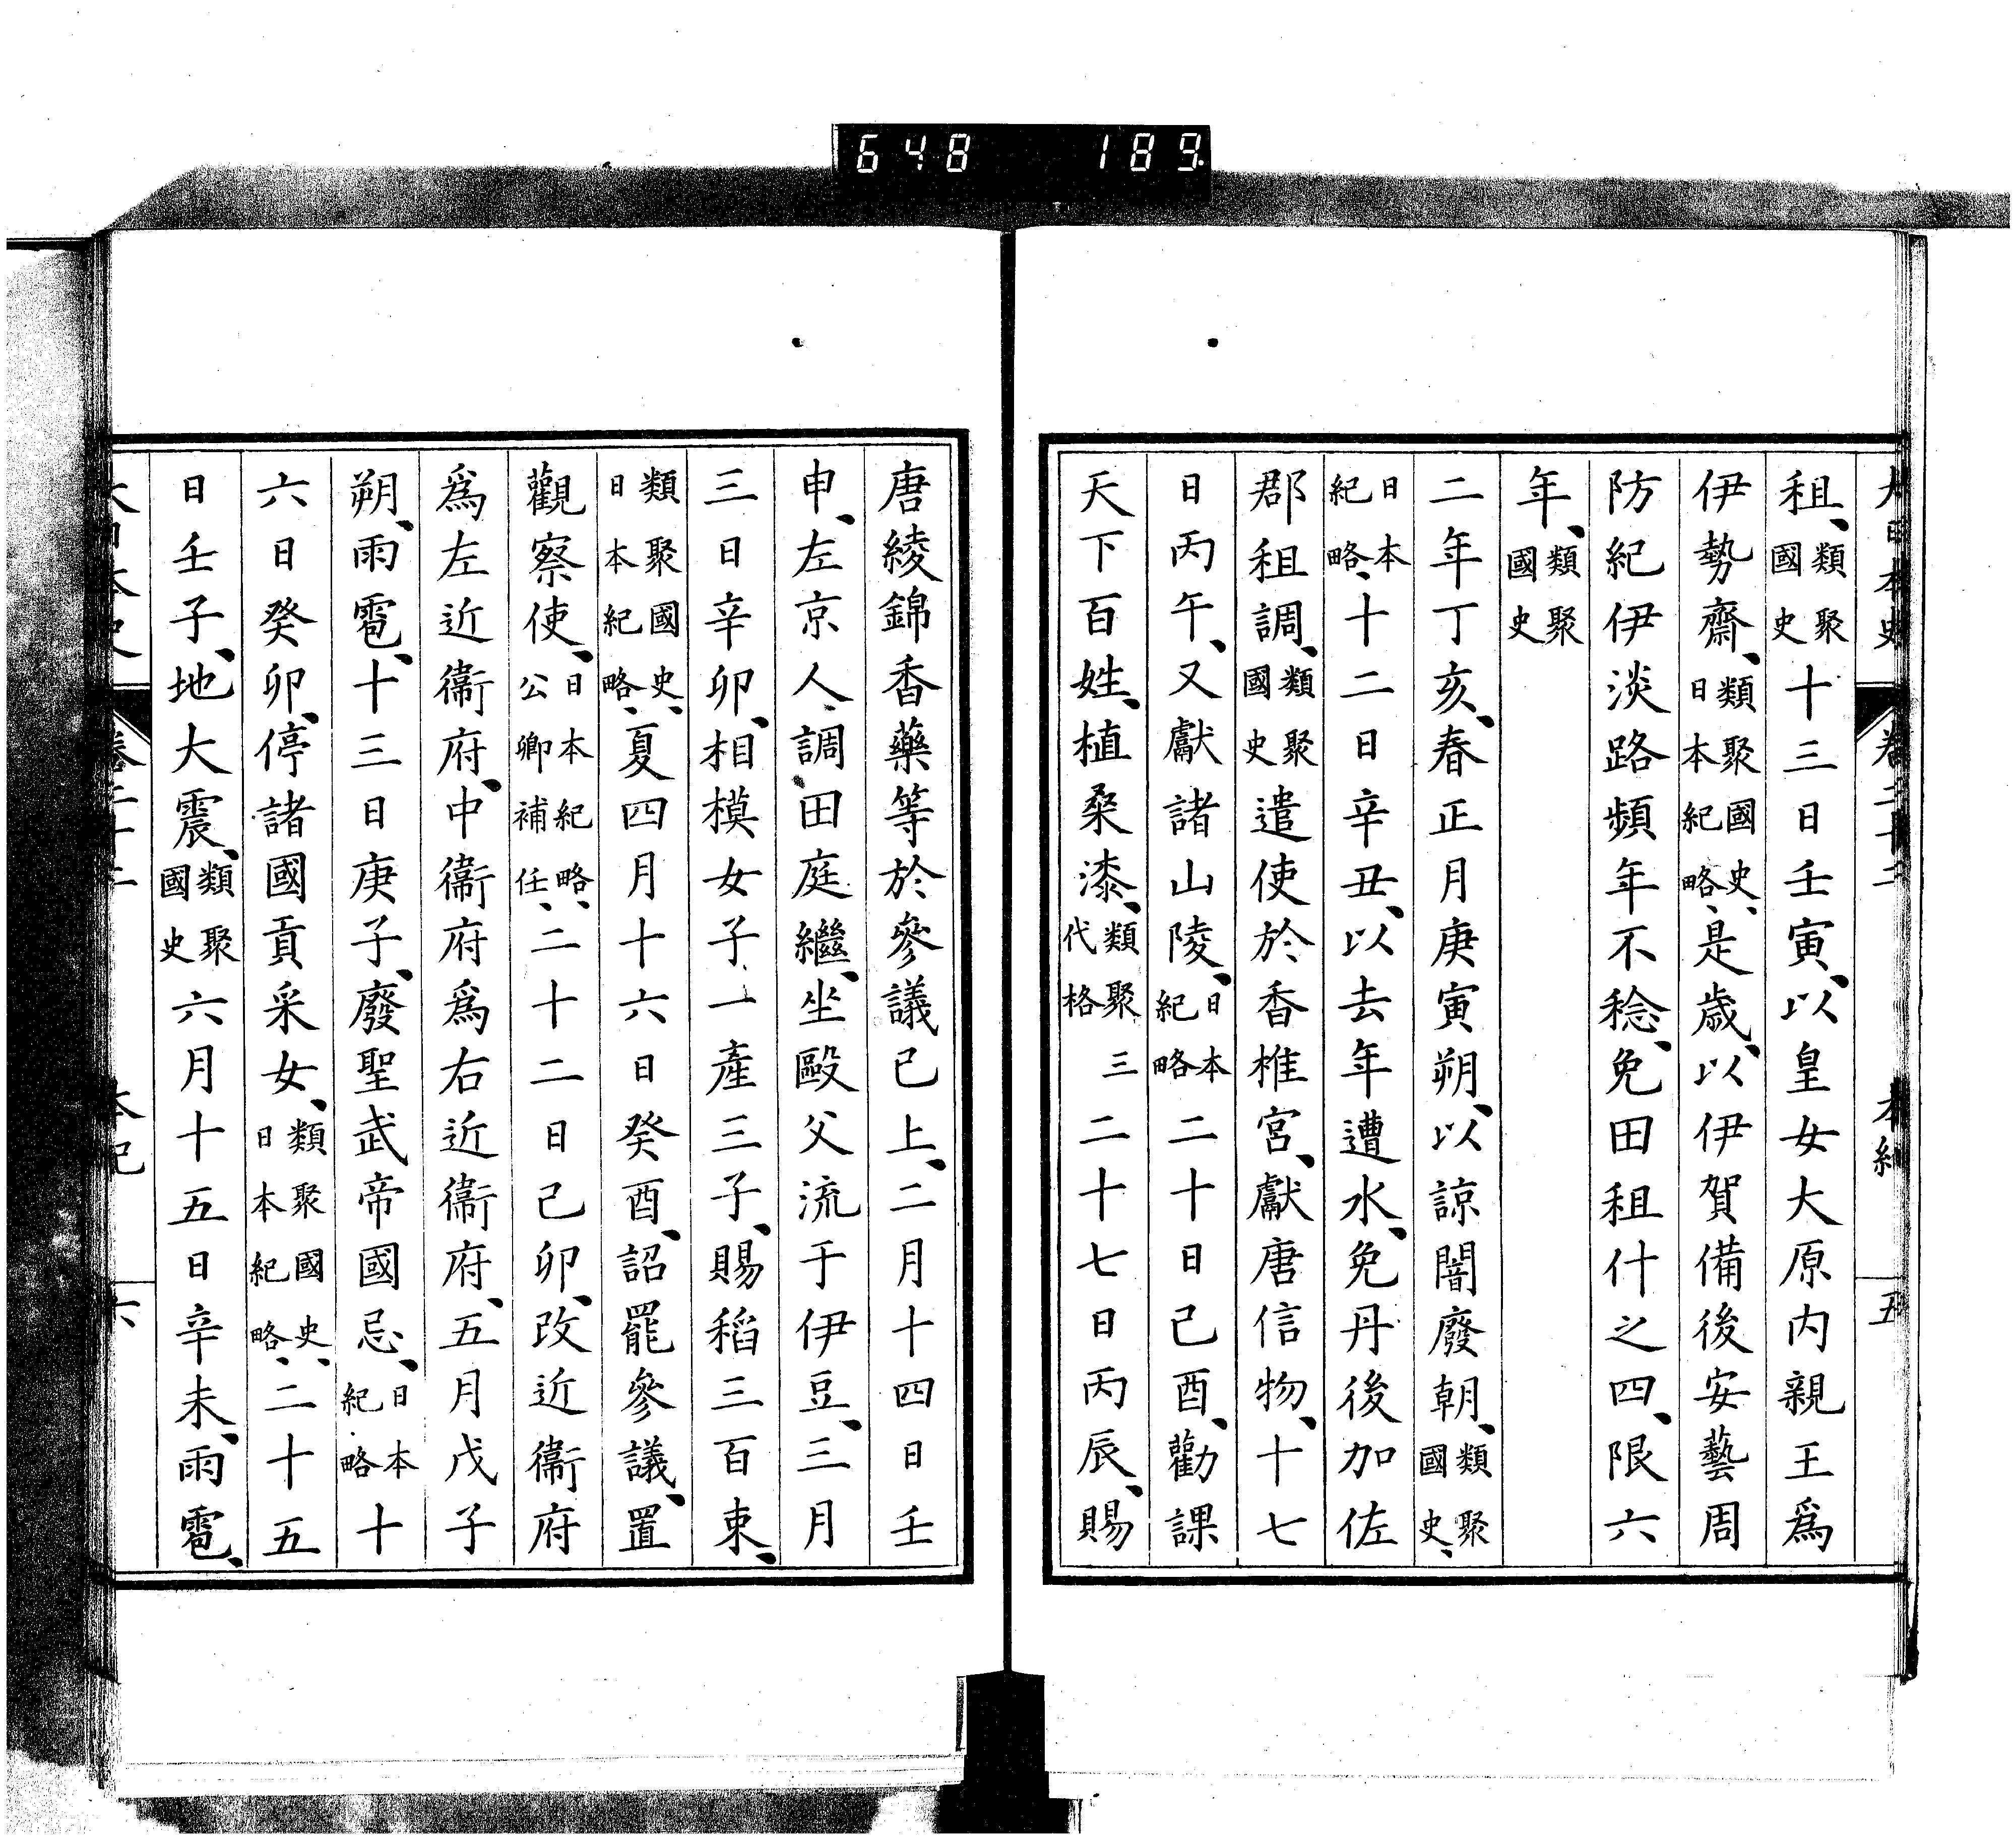 648 189
大日本史 卷二十二 本紀 五
租、類聚國史十三日壬寅、以皇女大原内親王爲
伊勢齋、類聚國史、日本紀略、是歳、以伊賀備後安藝周
防紀伊淡路頻年不稔、免田租什之四、限六
年、類聚國史
二年丁亥、春正月庚寅朔、以諒闇廢朝、類聚國史、
日本紀略、十二日辛丑、以去年遭水、免丹後加佐
郡租調、類聚國史遣使於香椎宮、獻唐信物、十七
日丙午、又獻諸山陵、日本紀略二十日己酉、勸課
天下百姓、植桑漆、類聚三代格二十七日丙辰、賜
唐綾錦香藥等於參議已上、二月十四日壬
申、左京人、調田庭繼、坐毆父流于伊豆、三月
三日辛卯、相模女子一產三子、賜稻三百束、
類聚國史、日本紀略、夏四月十六日癸酉、詔罷參議、置
觀察使、日本紀略、公卿補任、二十二日己卯、改近衞府
爲左近衞府、中衞府爲右近衞府、五月戊子
朔、雨雹、十三日庚子、廢聖武帝國忌、日本紀略十
六日癸卯、停諸國貢采女、類聚國史、日本紀略、二十五
日壬子、地大震、類聚國史六月十五日辛未、雨雹、